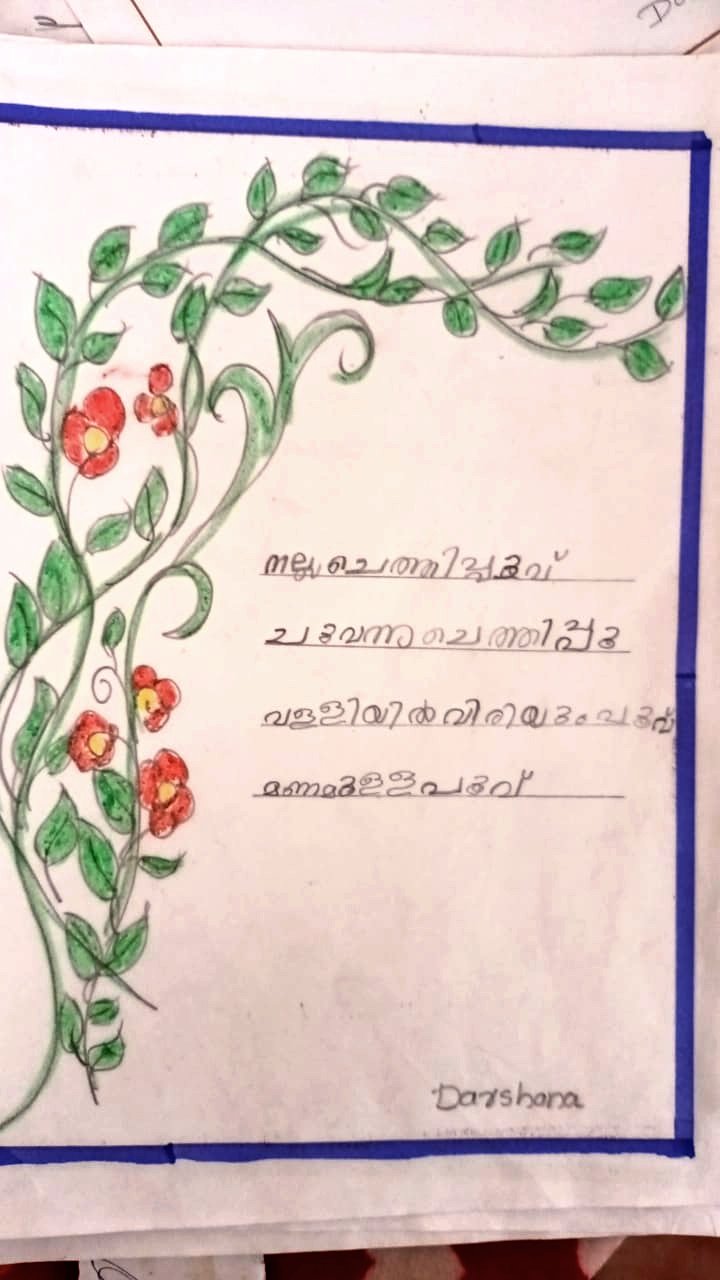 നല്ല ചെത്തിപ്പൂവ്
ചുവന്ന ചെത്തിപ്പൂ
വള്ളിയിൽ വിരിയും പൂവ്
മണമുള്ള പൂവ്
Darshana